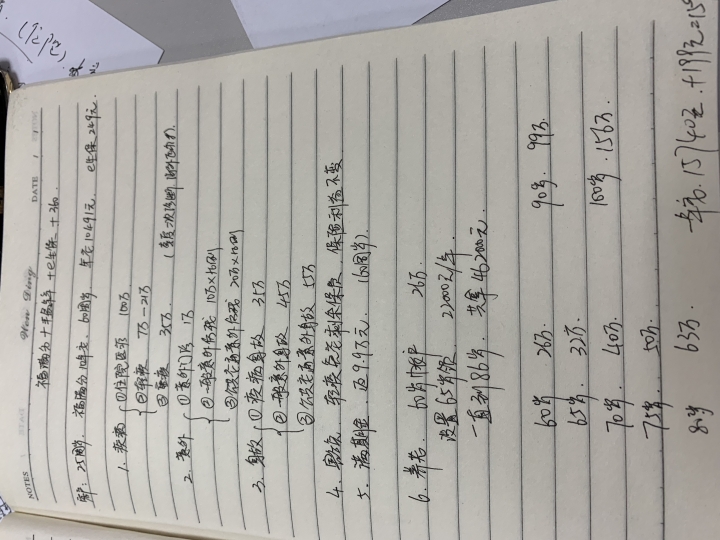 (住院)
NOTES
Wan Ding
DATE
福满分+手术意外+e生保+360.
客户: 25周岁. 福满分10年交 60周岁. 年交10491元. e生保 249元.
1. 疾病 ①住院医疗 100万
②轻疾 7万-21万
③重疾 35万 (等级一次诊断 额外
2. 意外 ①意外门诊 1万
②一般意外伤残 10万×10倍
③公共交通意外伤残 20万×10倍
3. 身故 ①疾病身故 35万
②一般意外身故 45万
③公共交通意外身故 55万
4. 豁免. 轻疾免交剩余保费. 保险利益不变
5. 满期金. 返9.97万元. (60周岁).
6. 养老. 60岁 26万.
设置65岁领. 22000元/年.
一直到86岁. 共拿 462000元.
60岁. 26万. 90岁. 99万.
65岁. 32万.
70岁. 40万. 100岁. 156万.
75岁. 50万.
80岁 63万. 年交. 15740元. +199元=15